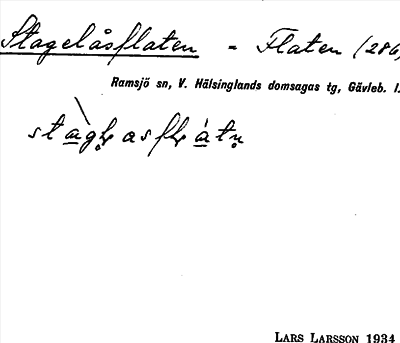 Stagelåsflaten - Flaten (286)
Ramsjö sn, V. Hälsinglands domsagas tg, Gävleb. l.
LARS LARSSON 1934